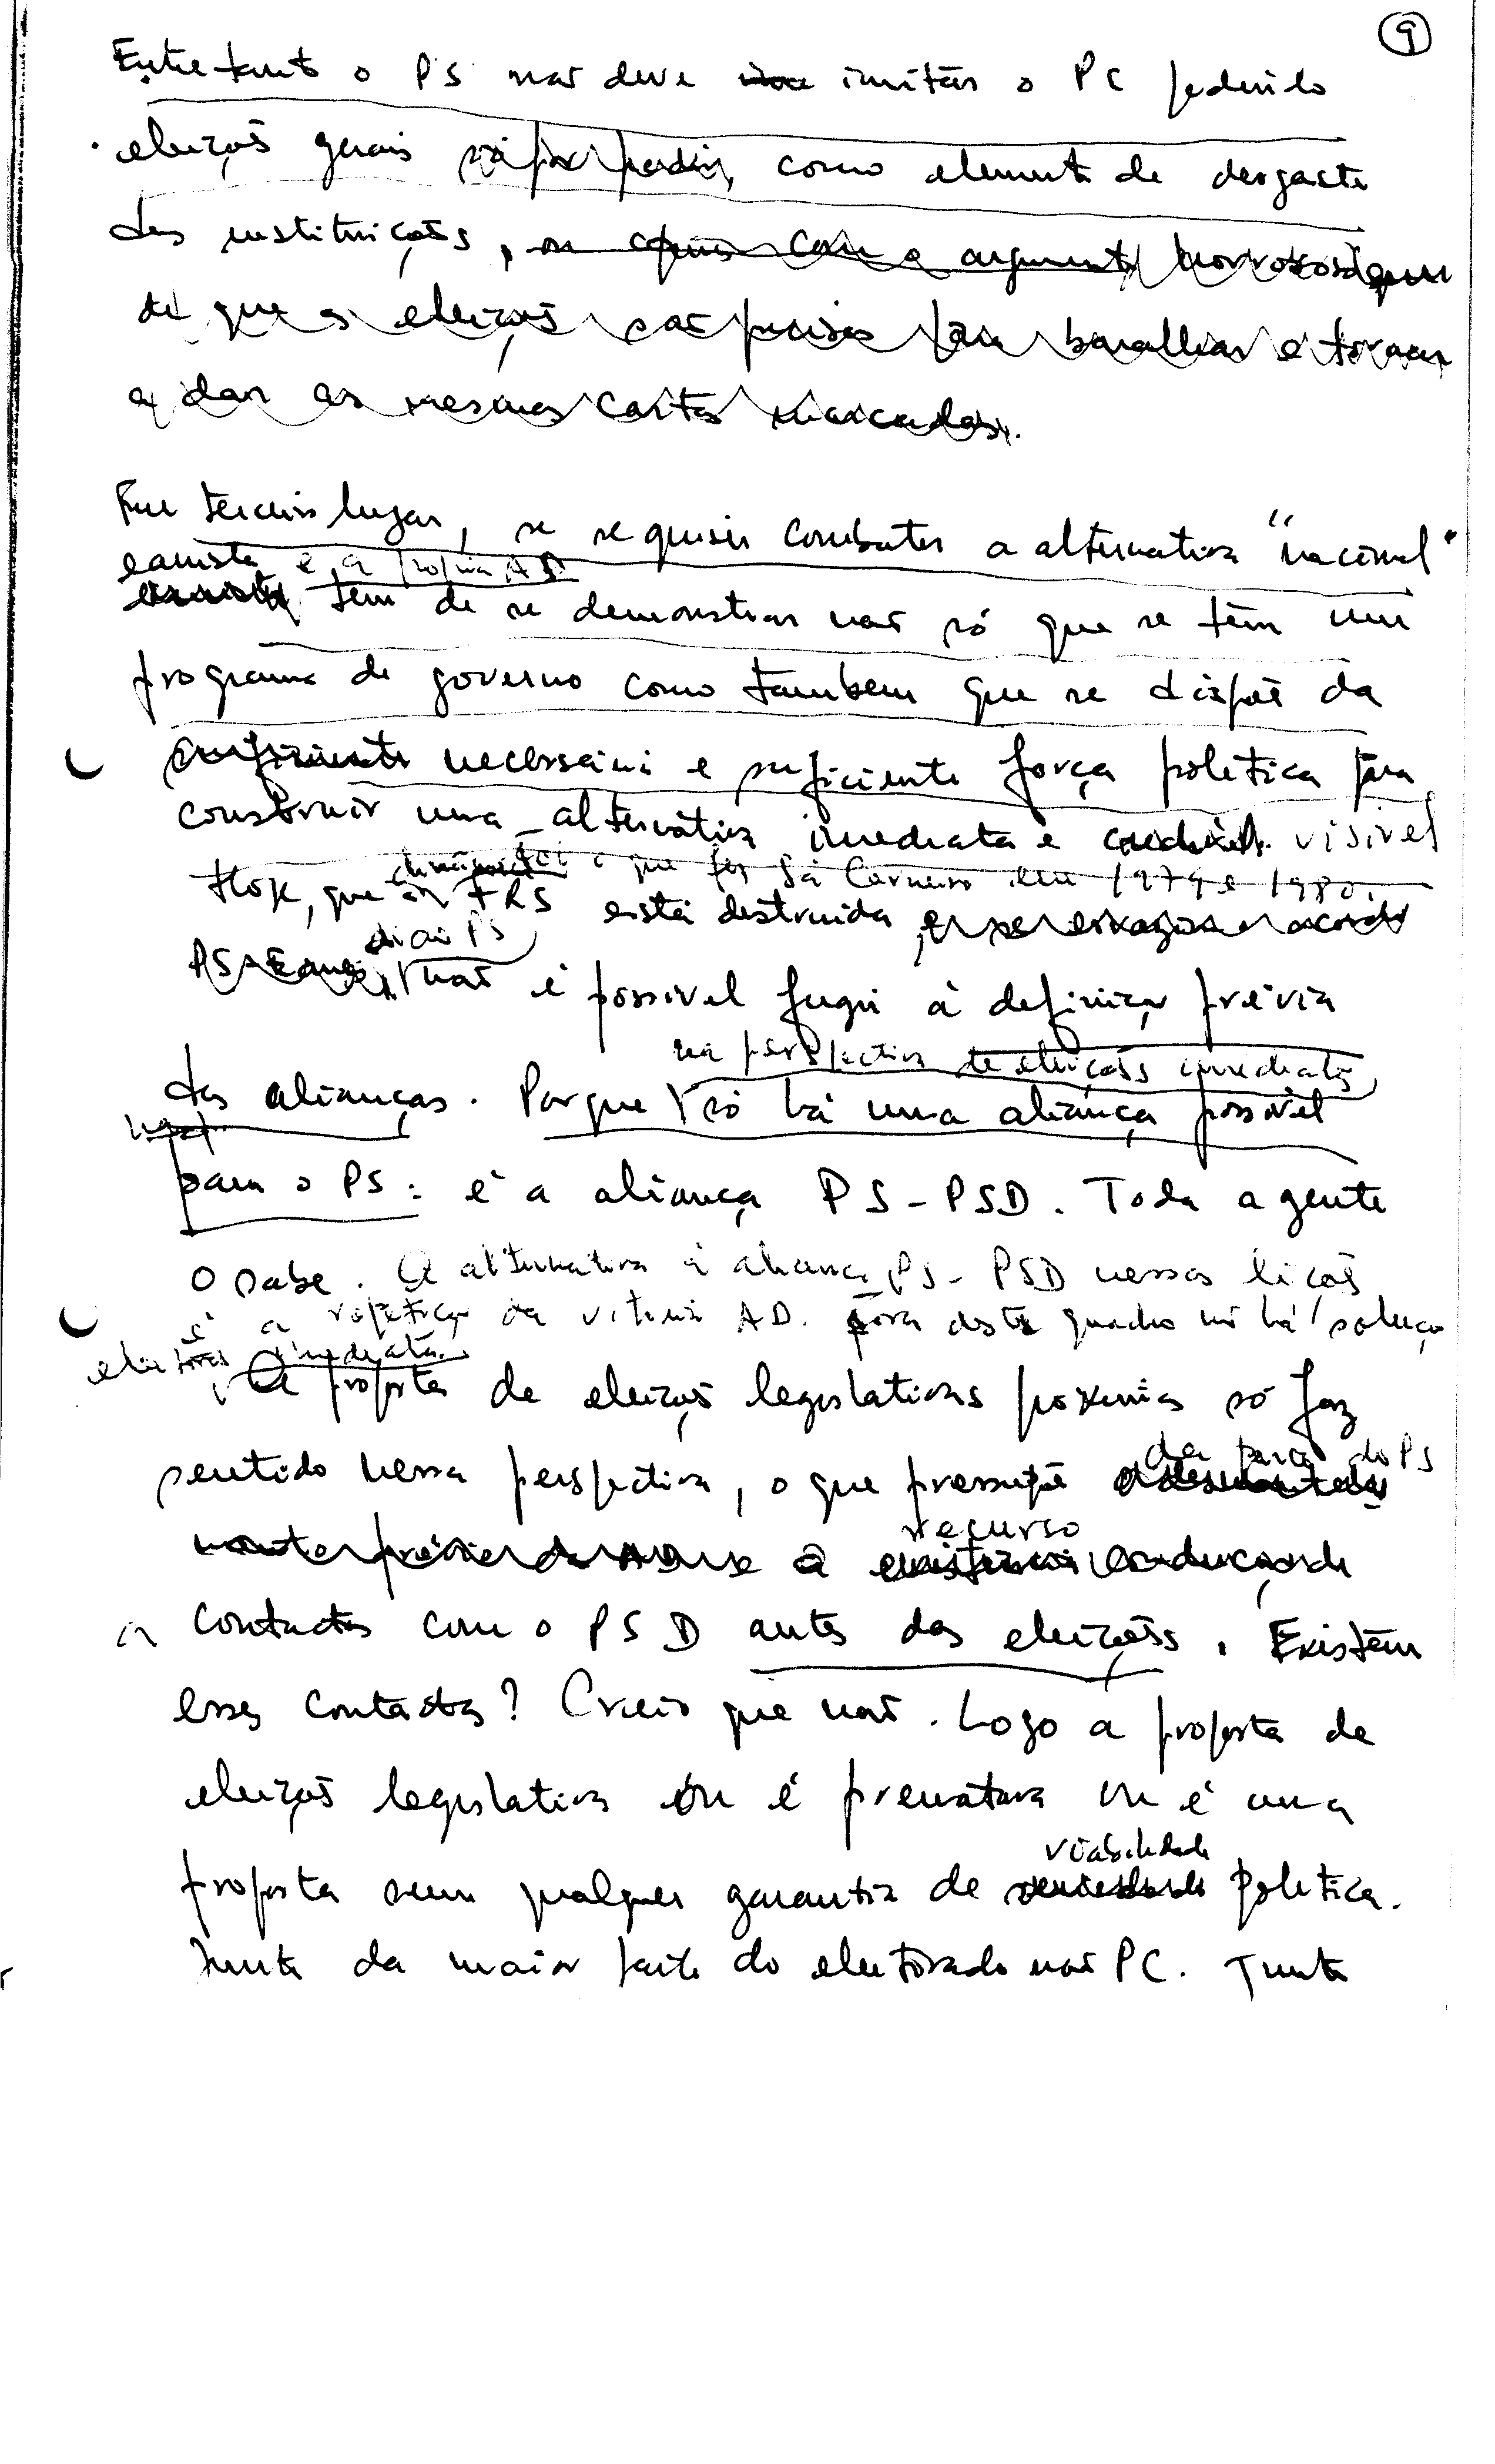 9
Entretanto o PS não deve imitar o PC pedindo
eleições gerais só por pedir, como elemento de desgaste
das instituições, ou com o argumento
de que as eleições são precisas para baralhar e tornar
a dar as mesmas cartas marcadas.
Em terceiro lugar, se se quiser combater a alternativa "nacional"
eanista e a própria AD
tem de se demonstrar não só que se têm um
programa de governo como tambem que se dispõe da
suficiente necessária e suficiente força politica para
construir uma alternativa imediata e credivel. visivel
foi o que fez Sá Carneiro em 1979 e 1980.
Hoje, que a FRS está destruida,
diai PS
não é possivel fugir à definição prévia
na perspectiva de eleições imediatas,
das alianças. Porque só há uma aliança possivel
para o PS: é a aliança PS-PSD. Toda a gente
o sabe. A alternativa à aliança PS-PSD nessas eleições
é a repetição da vitória AD. Fora deste quadro não há solução
eleitoral imediata.
A proposta de eleições legislativas próximas só faz
sentido nessa perspectiva, o que pressupõe
da parte do PS
recurso
a existencia condução de
a contactos com o PSD antes das eleições. Existem
esses contactos? Creio que não. Logo a proposta de
eleições legislativas ou é prematura ou é uma
viabilidade
proposta sem qualquer garantia de seriedade politica.
Junto da maior parte do eleitorado não PC. Junto